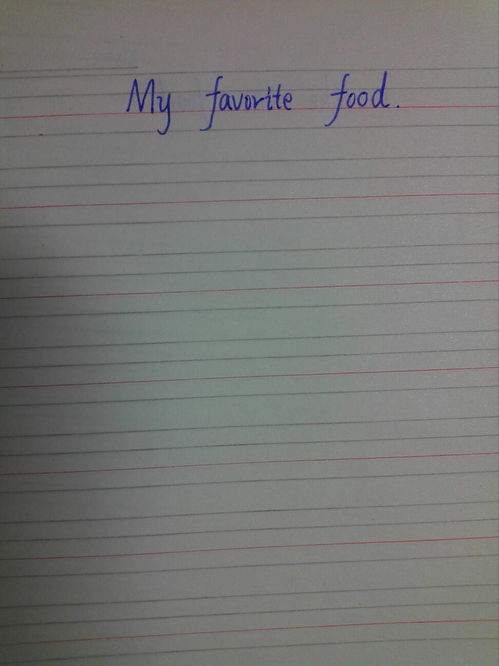 My favorite food.